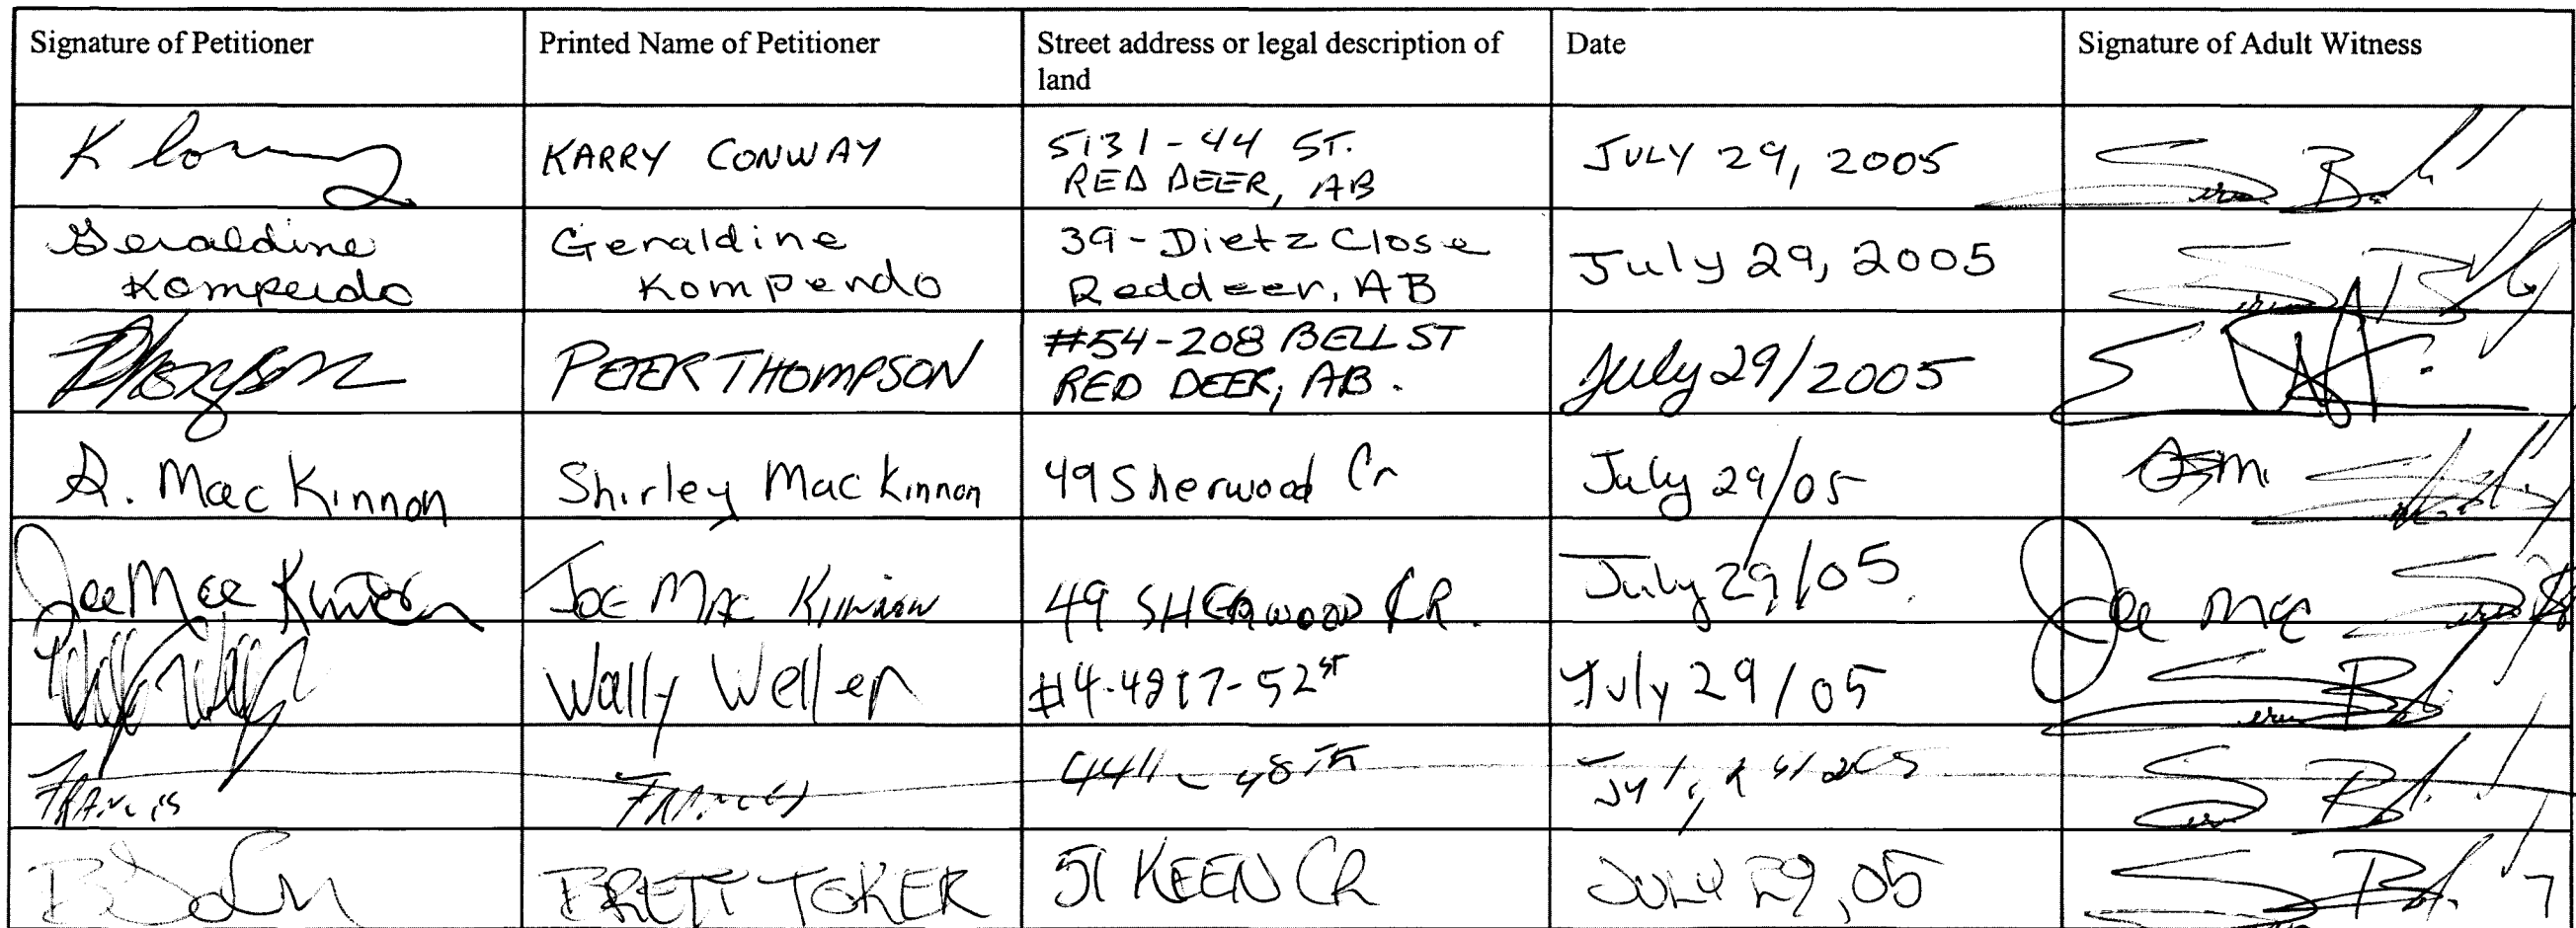 Signature of Petitioner
Printed Name of Petitioner
Street address or legal description of
land
Date
Signature of Adult Witness
K Conway
KARRY CONWAY
5131-44 ST.
RED DEER, AB
JULY 29, 2005
Geraldine
Kompendo
Geraldine
Kompendo
39-Dietz Close
Reddeer, AB
July 29, 2005
PThompson
PETER THOMPSON
#54-208 BELL ST
RED DEER, AB.
July 29/2005
S. MacKinnon
Shirley MacKinnon
49 Sherwood Cr
July 29/05
Joe MacKinnon
JOE MAC KINNON
49 SHERWOOD CR.
July 29/05.
Joe Mac
Wally Weller
#4-4817-52st
July 29/05
FRANCIS
FRANCIS
4411-48TH
BRETT TOKER
51 KEEN CR
JULY 29, 05
7